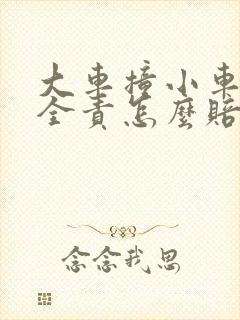 大車撞小車
全責怎麼賠
念念我思